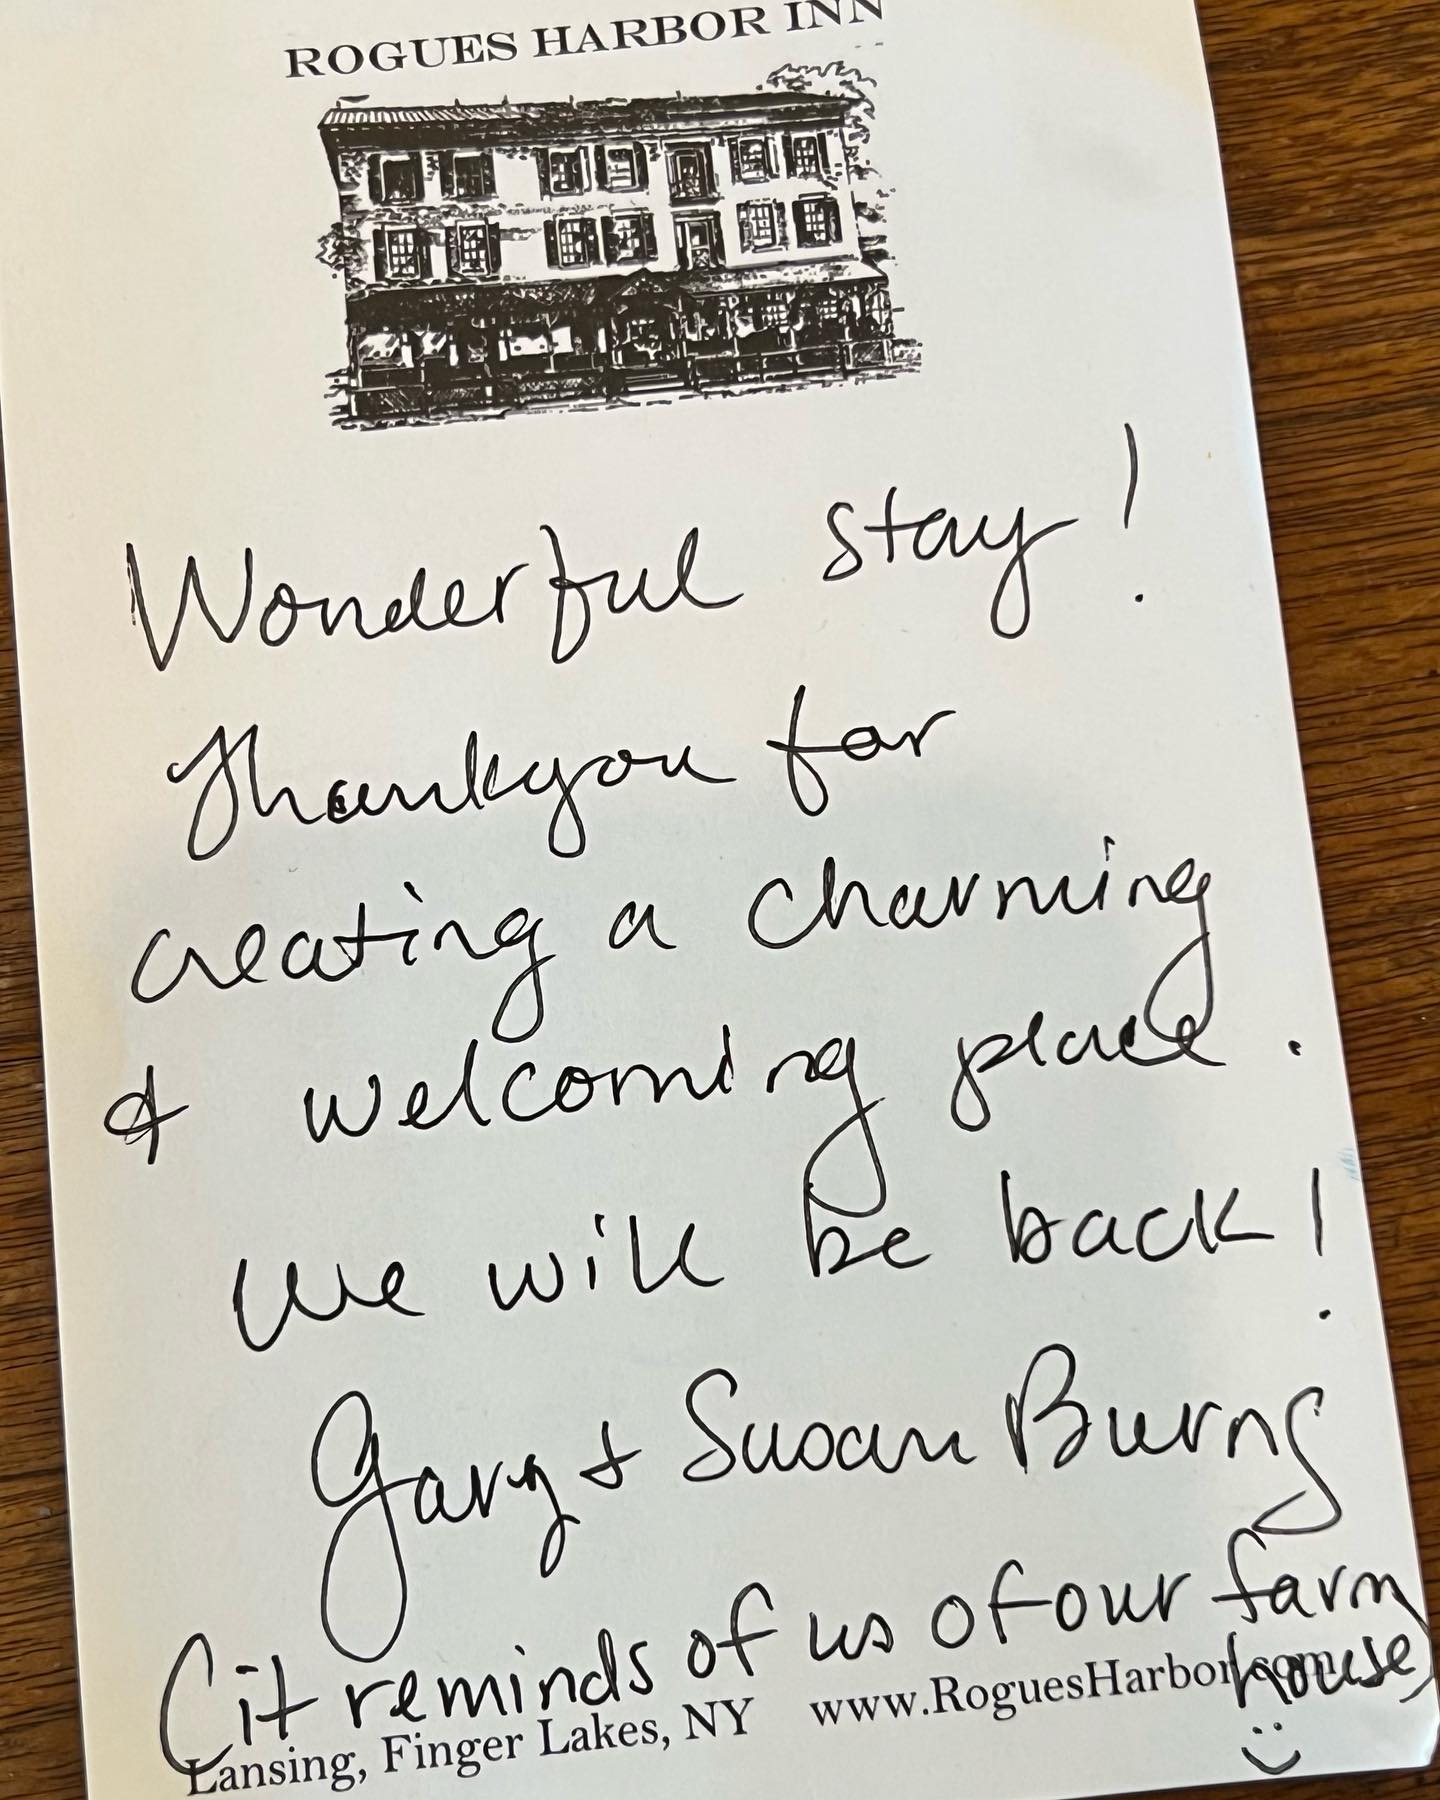 ROGUES HARBOR INN
Wonderful stay!
Thankyou for
creating a charming
& welcoming place.
We will be back!
Gary + Susan Burns
(it reminds of us of our farm
house)
Lansing, Finger Lakes, NY www.RoguesHarbor.com